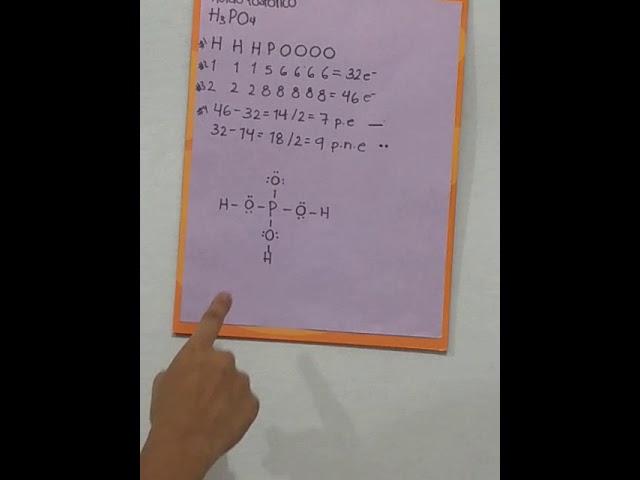 H₃PO₄
*1 H H H P O O O O
*2 1 1 1 5 6 6 6 6 = 32e⁻
*3 2 2 2 8 8 8 8 8 = 46 e⁻
*4 46 - 32 = 14 /2 = 7 p.e —
32 - 14 = 18 /2 = 9 p.n.e ••
:Ö:
H - O - P - O - H
:O:
H